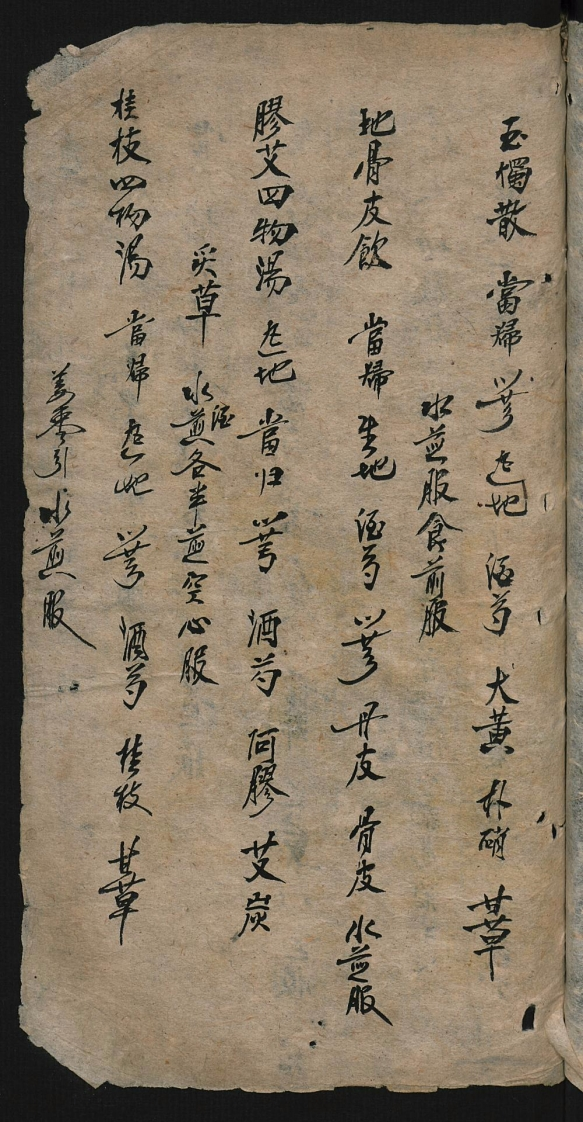 玉燭散 當歸 川芎 芐地 酒芍 大黃 朴硝 甘草
水煎服食前服
地骨皮飲 當歸 生地 酒芍 川芎 丹皮 骨皮 水煎服
膠艾四物湯 地 當归 川芎 酒芍 阿膠 艾炭
炙草 水酒各半煎空心服
桂枝四物湯 當歸 地 川芎 酒芍 桂枝 甘草
姜枣引水煎服